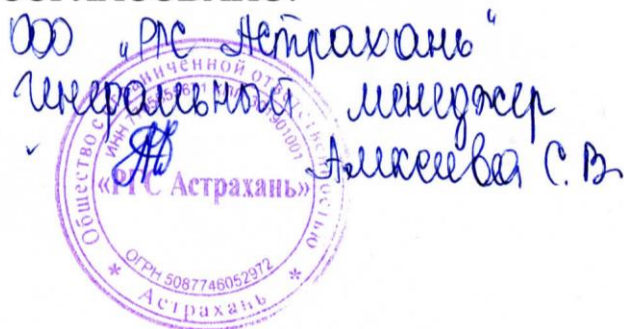 СОГЛАСОВАНО:
ООО "РГС Астрахань"
Генеральный менеджер
Алексеева С.В.
Общество с ограниченной ответственностью
ИНН
901001
«РГС Астрахань»
ОГРН 5087746052972
* Астрахань *